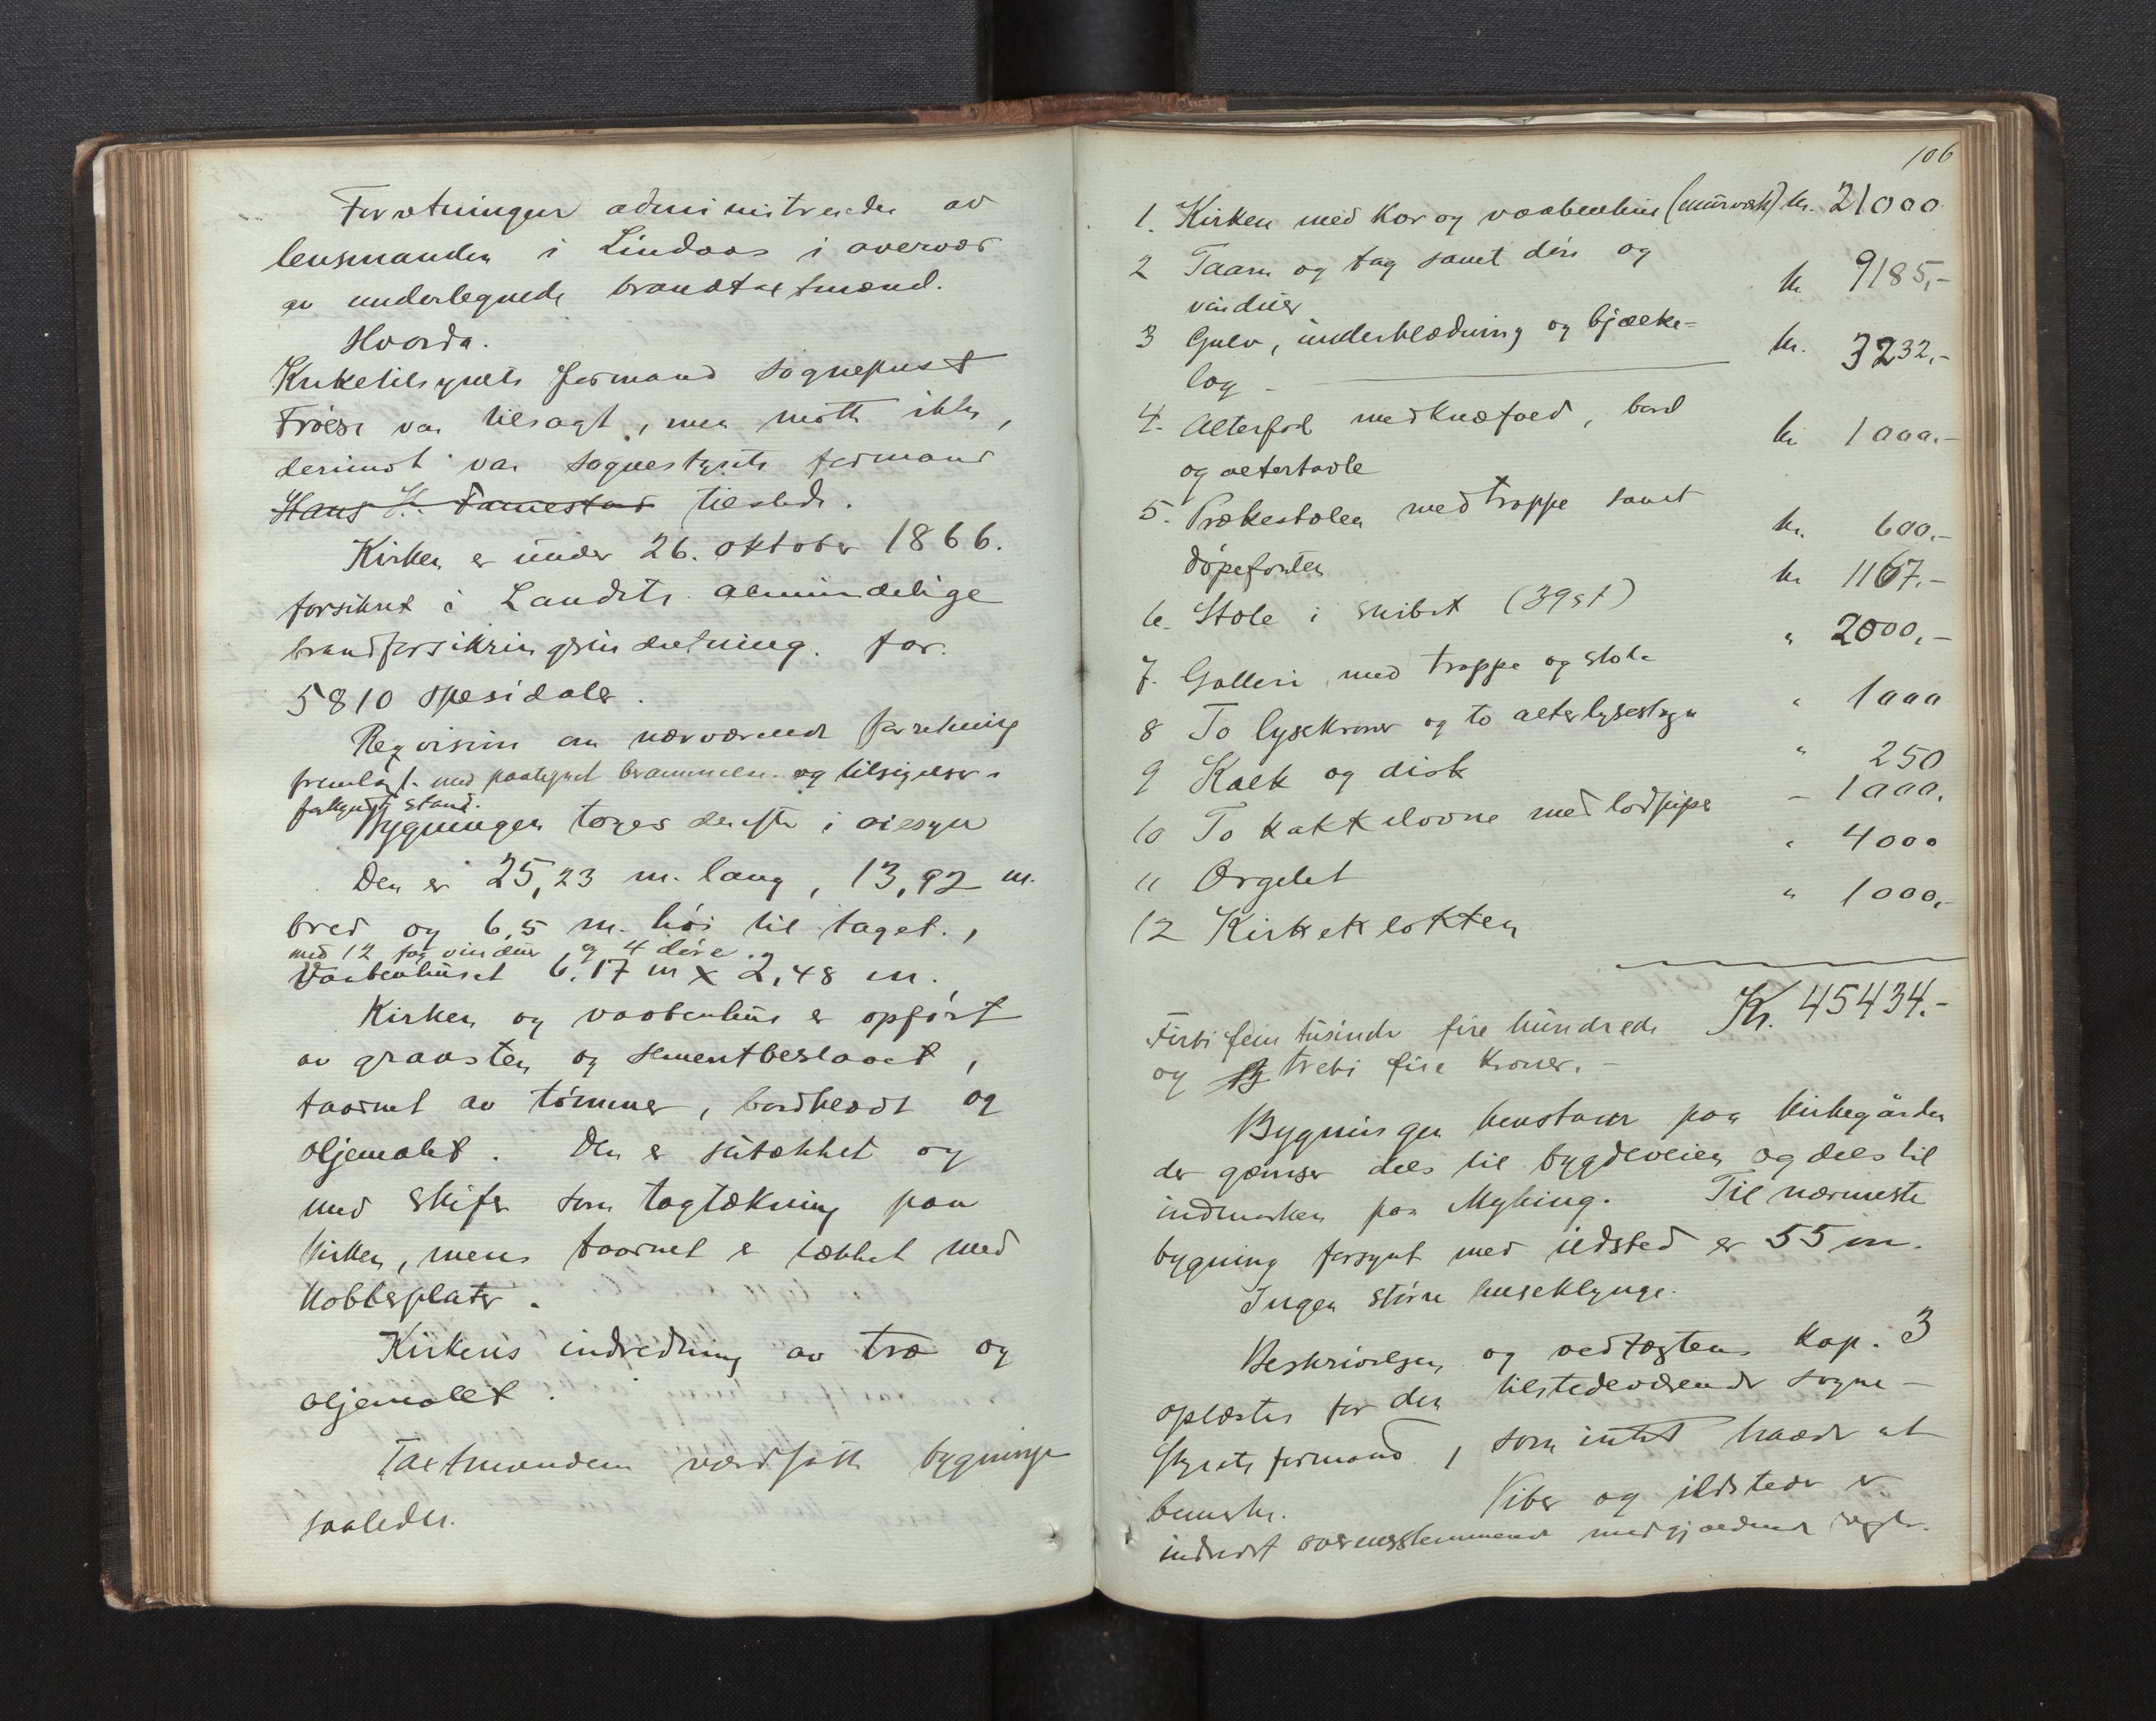 Forretningen administreredes av
lensmanden i Lindaas i overvær
av undertegnede brandtaxtmænd.
Hvorda.
Kirketilsynets formand sogneprest
Frøese var tilsagt, men møtte ikke,
derimot var sognestyrets formand
Hans K. Fammestad tilstede.
Kirken er under 26. oktober 1866.
forsikret i Landets almindelige
brandforsikringsindretning. for.
5810 spesidaler.
Reqvisition om nærværende forretning
fremlagt. med paategnet berammelse og tilsigelser
forkyndt stand.
Bygningen toges derefter i øiesyn
Den er 25,23 m. lang, 13,92 m.
bred og 6,5 m. høi til taget.,
med 12 fag vinduer og 4 døre.
Vaabenhuset 6.17 m x 2,48 m.
Kirken og vaabenhus er opført
av graasten og sementbeslaaet,
taarnet av tømmer, bordklædt og
oljemalet. Den er sutækket og
med skifer som tagtækning paa
kirken, mens taarnet er tækket med
kobberplater.
Kirkens indredning av træ og
oljemalet.
Taxtmændene værdsatte bygninge
saaledes.
106
1. Kirken med kor og vaabenhus (murverk) kr. 21000
2 Taarn og tag samt døre og
vinduer kr. 9185,-
3 Gulv, underklædning og bjælke-
lag - kr. 3232,-
4. Alterfod med knæfald, bord
og altertavle kr 1000.-
5. Prækestolen med trappe samt
døpefonten kr. 600.-
6. Stole i skibet (39 st) kr 1167.-
7. Galleri med trappe og stole " 2000,-
8 To lysekroner og to alterlysestager " 1000
9 Kalk og disk " 250
10 To kakkelovne med lodpiper - 1000.
11 Orgelet " 4000
12 Kirkeklokken " 1000,-
Kr. 45434.-
Firti fem tusinde fire hundrede
og treti fire kroner. -
Bygningen henstaar paa kirkegården
der grænser dels til bygdeveien og dels til
indmarken paa Myking. Til nærmeste
bygning forsynt med ildsted er 55 m.
Ingen større huseklynge.
Beskrivelsen og vedtægtens kap. 3
oplæstes for den tilstedeværende sogne-
styrets formand, som intet havde at
bemerke. Piber og ildsteder er
indredet overensstemmende med gjældende regler.